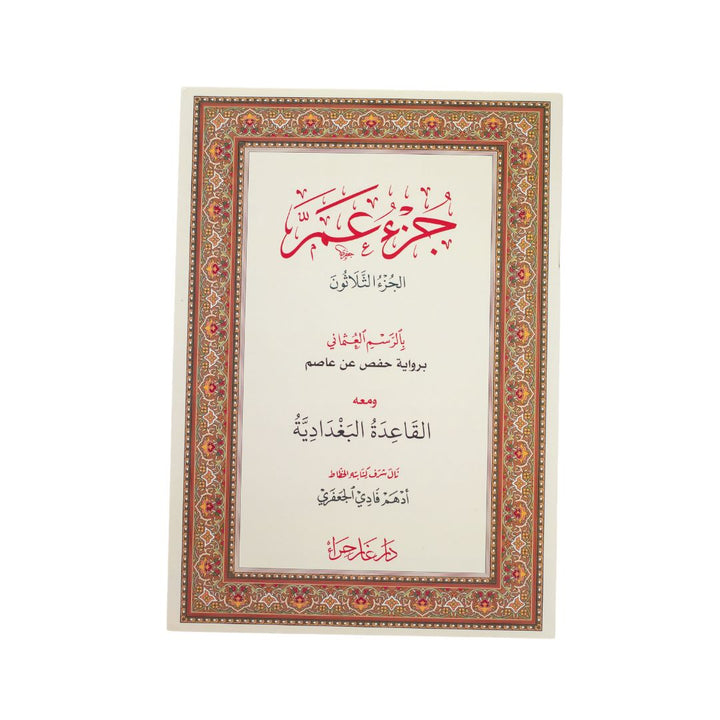 جُزْءُ عَمَّ
الجُزْءُ الثَّلَاثُونَ
بِالرَّسْمِ العُثمَاني
برواية حفص عن عاصم
ومعه
القَاعِدَةُ البَغْدَادِيَّةُ
نَالَ شَرَفَ كِتَابَتِهِ الخَطَّاط
أدْهَمْ فَادِي الجَعْفَرِي
دَارُ غَارِ حِرَاءَ